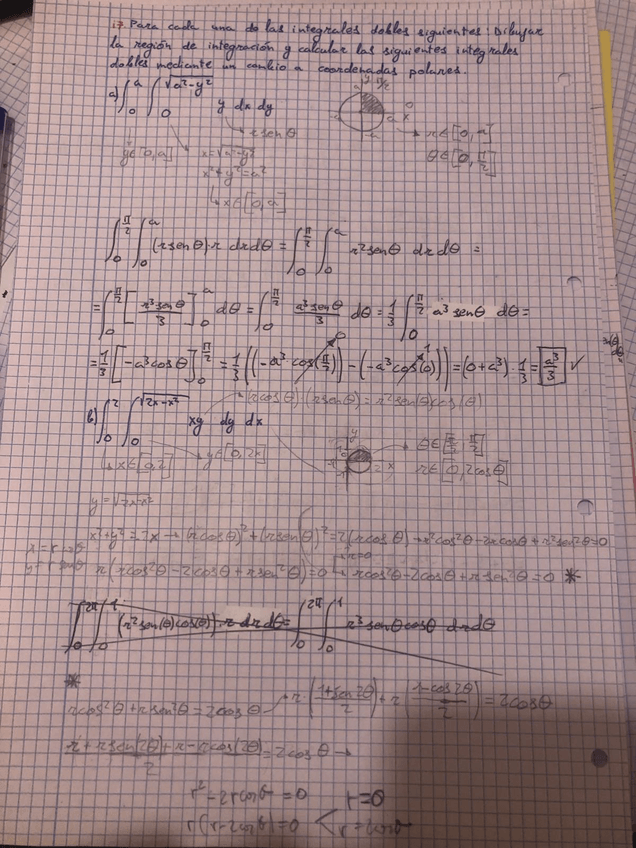 17. Para cada una de las integrales dobles siguientes: Dibujar
la región de integración y calcular las siguientes integrales
dobles mediante un cambio a coordenadas polares.
a) ∫₀^a ∫₀^√(a²-y²) y dx dy
r sen θ
r ∈ [0,a]
θ ∈ [0, π/2]
y ∈ [0,a]
x = √(a²-y²)
x² + y² = a²
↳ x ∈ [0,a]
∫₀^(π/2) ∫₀^a (r sen θ) · r dr dθ = ∫₀^(π/2) ∫₀^a r² sen θ dr dθ =
= ∫₀^(π/2) [r³ sen θ / 3]₀^a dθ = ∫₀^(π/2) a³ sen θ / 3 dθ = 1/3 ∫₀^(π/2) a³ sen θ dθ =
= 1/3 [-a³ cos θ]₀^(π/2) = 1/3 ((-a³ cos(π/2)) - (-a³ cos(0))) = (0 + a³) · 1/3 = a³/3 ✓
b) ∫₀² ∫₀^√(2x-x²) xy dy dx
(r cos θ) · (r sen θ) = r² sen(θ) cos(θ)
↳ x ∈ [0,2]
r ∈ [0, 2cos θ]
x² + y² = 2x → (r cos θ)² + (r sen θ)² = 2(r cos θ) → r² cos² θ - 2r cos θ + r² sen² θ = 0
x = r cos θ
y = r sen θ
r (r cos² θ - 2 cos θ + r sen² θ) = 0 ↳ r cos² θ - 2 cos θ + r sen² θ = 0 *
r = 0
∫₀^(2π) ∫₀^1 (r² sen(θ) cos(θ)) · r dr dθ = ∫₀^(2π) ∫₀^1 r³ sen θ cos θ dr dθ
*
r cos² θ + r sen² θ = 2 cos θ → r · (1 + sen 2θ / 2) + r (1 - cos 2θ / 2) = 2 cos θ
r + r sen(2θ) + r - r cos(2θ) / 2 = 2 cos θ →
r² - 2r cos θ = 0 r = 0
r (r - 2 cos θ) = 0 < r = 2 cos θ